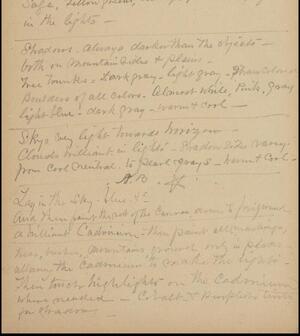 Sage, Yellow greens,
in the lights —
Shadows. always darker than the objects —
both on Mountain Sides & Plains —
Tree trunks = dark gray - light gray -
Boulders of all colors. almost white, Pink, Gray
light blue - dark gray - warm & cool —
Sky = very light towards horizon —
Clouds brilliant in lights - shadow sides vary
from cool neutral to pearl grays - warm & cool -
Lay in the Sky - blue &c
And then paint the rest of the Canvas down to foreground
a brilliant Cadmium - then paint all
trees, bushes, mountains ground only in places
allowing the Cadmium to make the lights -
Then touch highlights on the Cadmium
where needed — Cobalt &
for shadows —